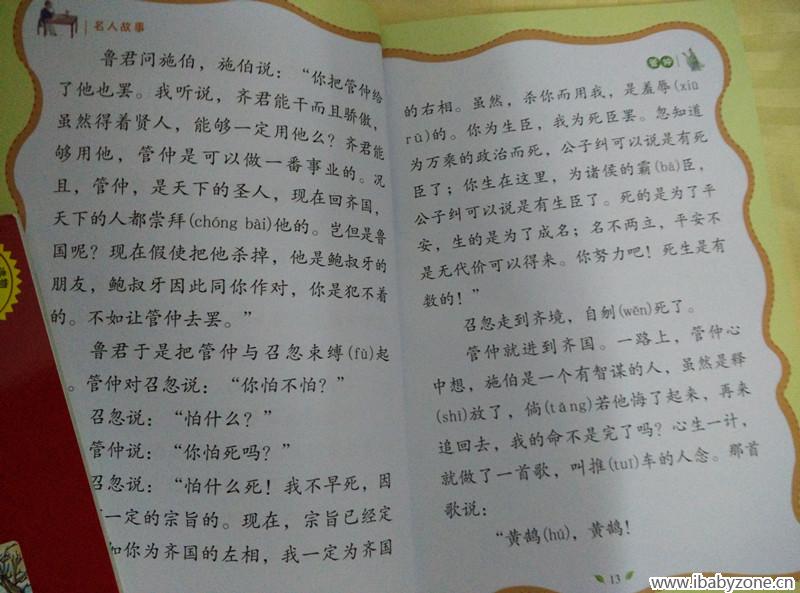 名人故事
鲁君问施伯，施伯说：“你把管仲给
了他也罢。我听说，齐君能干而且骄傲，
虽然得着贤人，能够一定用他么？齐君能
够用他，管仲是可以做一番事业的。况
且，管仲，是天下的圣人，现在回齐国，
天下的人都崇拜(chóng bài)他的。岂但是鲁
国呢？现在假使把他杀掉，他是鲍叔牙的
朋友，鲍叔牙因此同你作对，你是犯不着
的。不如让管仲去罢。”
鲁君于是把管仲与召忽束缚(fù)起
。管仲对召忽说：“你怕不怕？”
召忽说：“怕什么？”
管仲说：“你怕死吗？”
召忽说：“怕什么死！我不早死，因
一定的宗旨的。现在，宗旨已经定
如你为齐国的左相，我一定为齐国
管仲
的右相。虽然，杀你而用我，是羞辱(xiū
rǔ)的。你为生臣，我为死臣罢。忽知道
为万乘的政治而死，公子纠可以说是有死
臣了；你生在这里，为诸侯的霸(bà)臣，
公子纠可以说是有生臣了。死的是为了平
安，生的是为了成名；名不两立，平安不
是无代价可以得来。你努力吧！死生是有
数的！”
召忽走到齐境，自刎(wěn)死了。
管仲就进到齐国。一路上，管仲心
中想，施伯是一个有智谋的人，虽然是释
(shì)放了，倘(tǎng)若他悔了起来，再来
追回去，我的命不是完了吗？心生一计，
就做了一首歌，叫推(tuī)车的人念。那首
歌说：
“黄鹄(hú)，黄鹄！
13
www.ibabyzone.cn